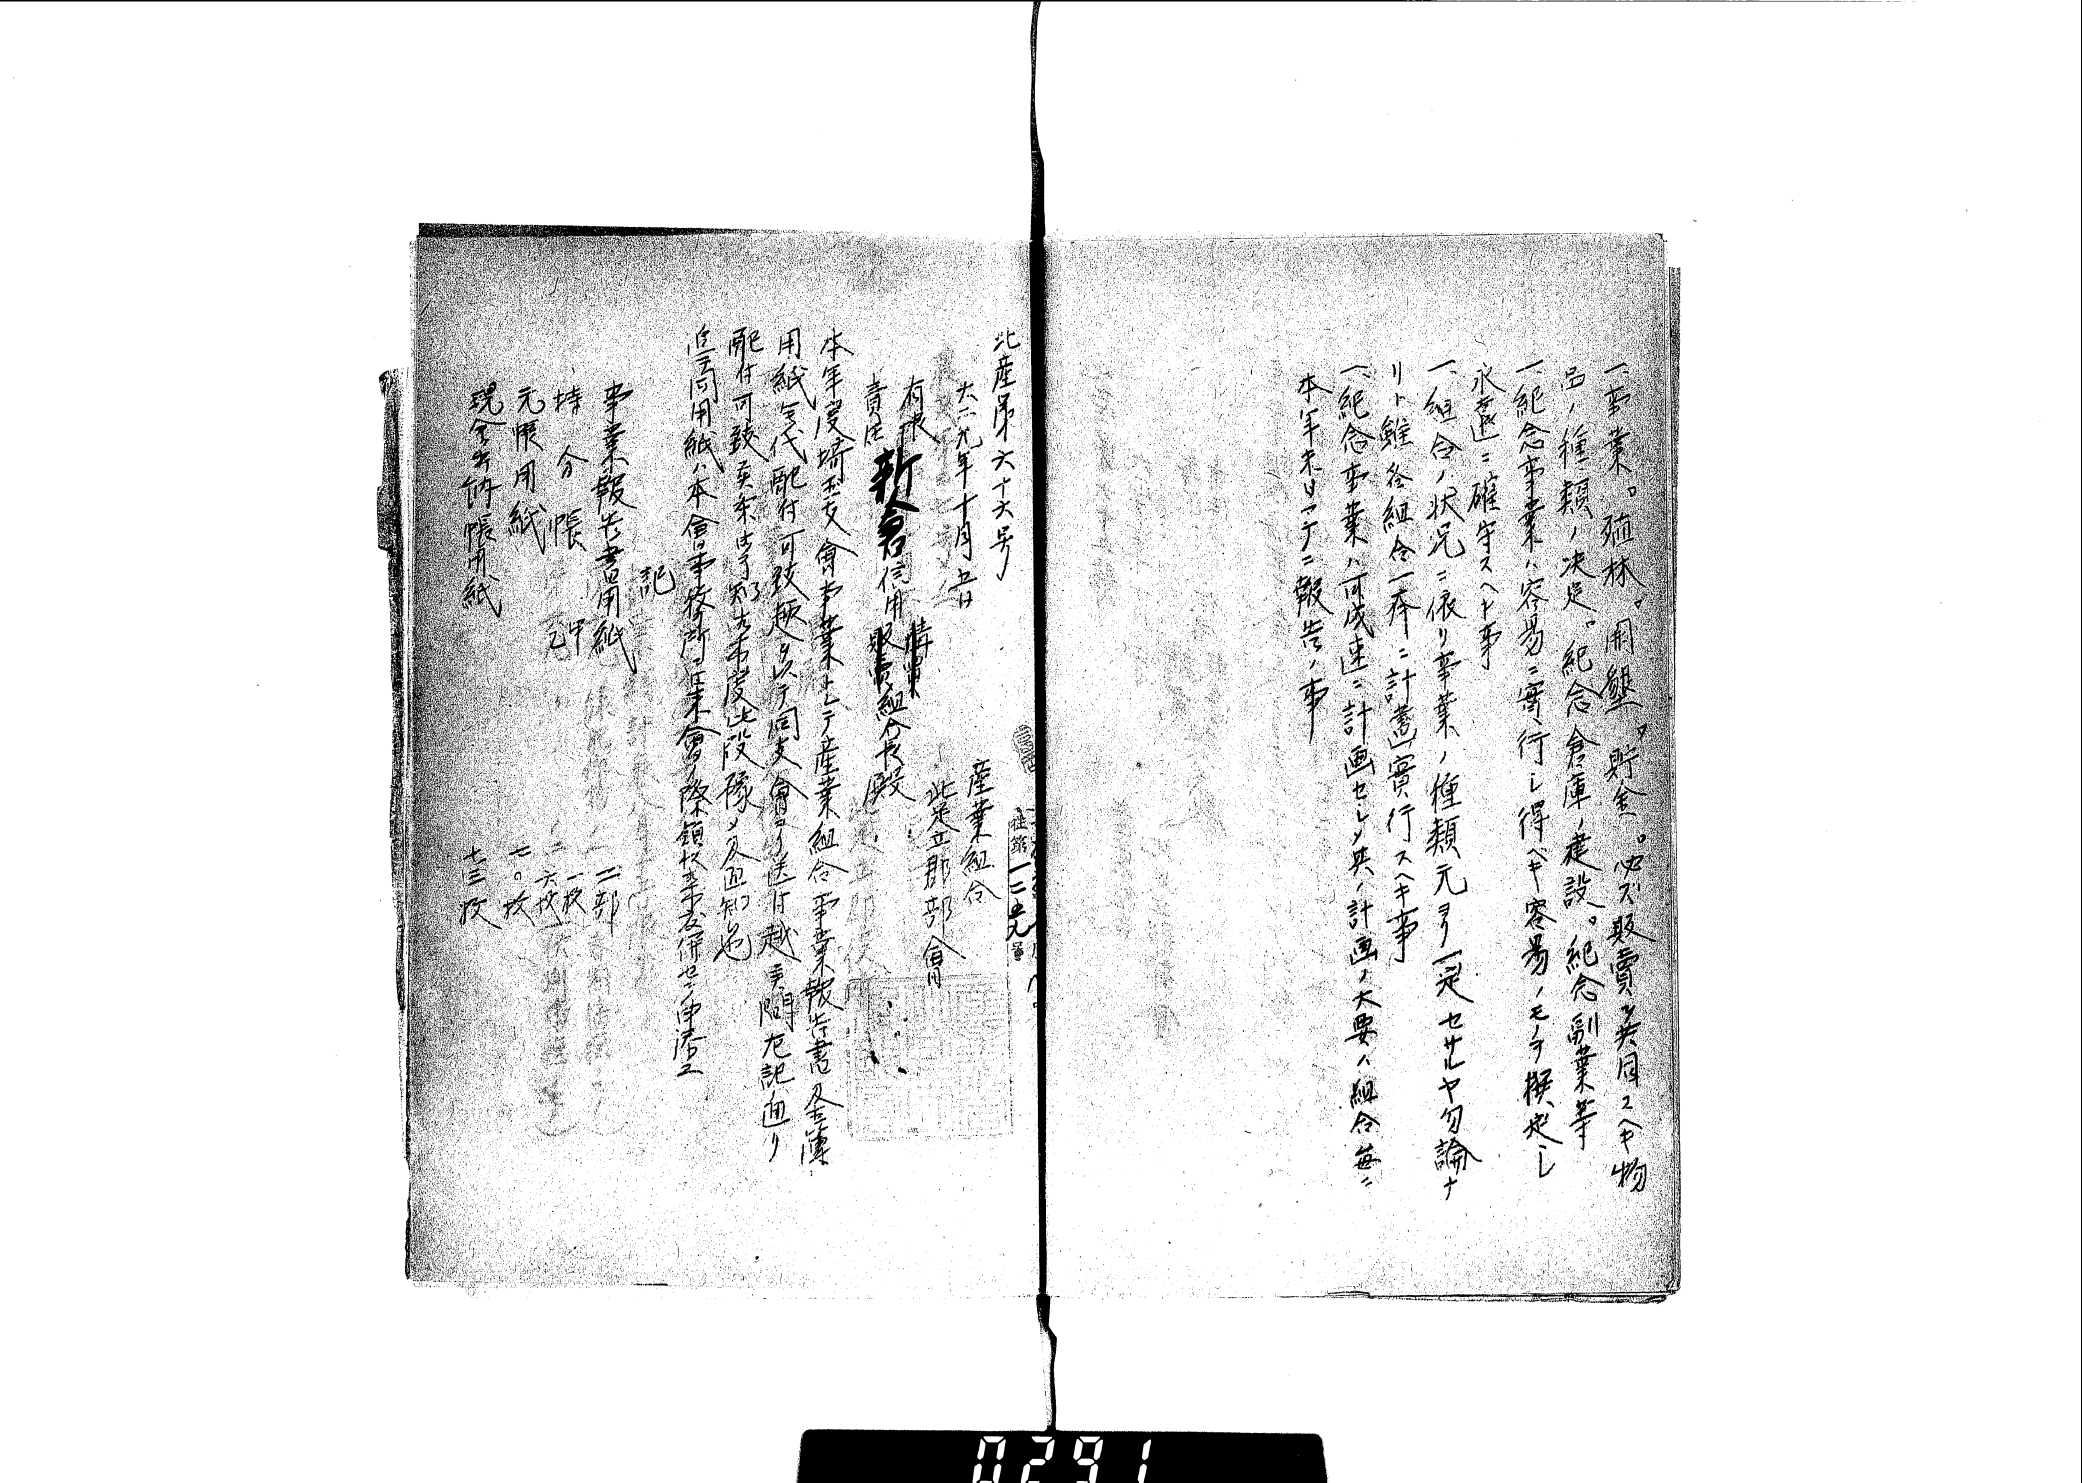 一、事業。殖林。開墾。貯金。必ズ販賣ヲ共同スヘキ物
品ノ種類ノ決定。紀念倉庫ノ建設。紀念副業等
一、紀念事業ハ容易ニ實行シ得ベキ容易ノモノヲ撰定シ
永遠ニ確守スヘキ事
一、組合ノ状況ニ依リ事業ノ種類元ヨリ一定セサルヤ勿論ナ
リト雖各組合一齊ニ計畫實行スヘキ事
一、紀念事業ハ可成速ニ計画セシメ其ノ計画ノ大要ハ組合毎ニ
本年末日マテニ報告ノ事
北産第六十六号
大正九年十月五日
産業組合
北足立郡部會
有限
責任
新倉信用購買販賣組合長殿
本年度埼玉支會事業トシテ産業組合事業報告書及全簿
用紙全代配付可致趣ヲ以テ同支會ヨリ送付越候間左記ノ通リ
配付可致候条御了知相成度此段豫メ及通知候也
追而同用紙ハ本會事務所ニ御来會ノ際領收相成度併セテ申添フ
記
事業報告書用紙 二部
持分帳 甲 一枚
乙 六枚
元帳用紙 七〇枚
現金出納帳用紙 七三枚
0291